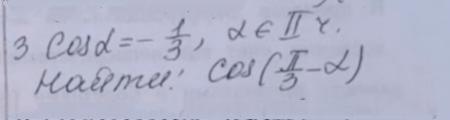 3. cosα = -1/3, α ∈ II ч.
Найти: cos(π/3 - α)